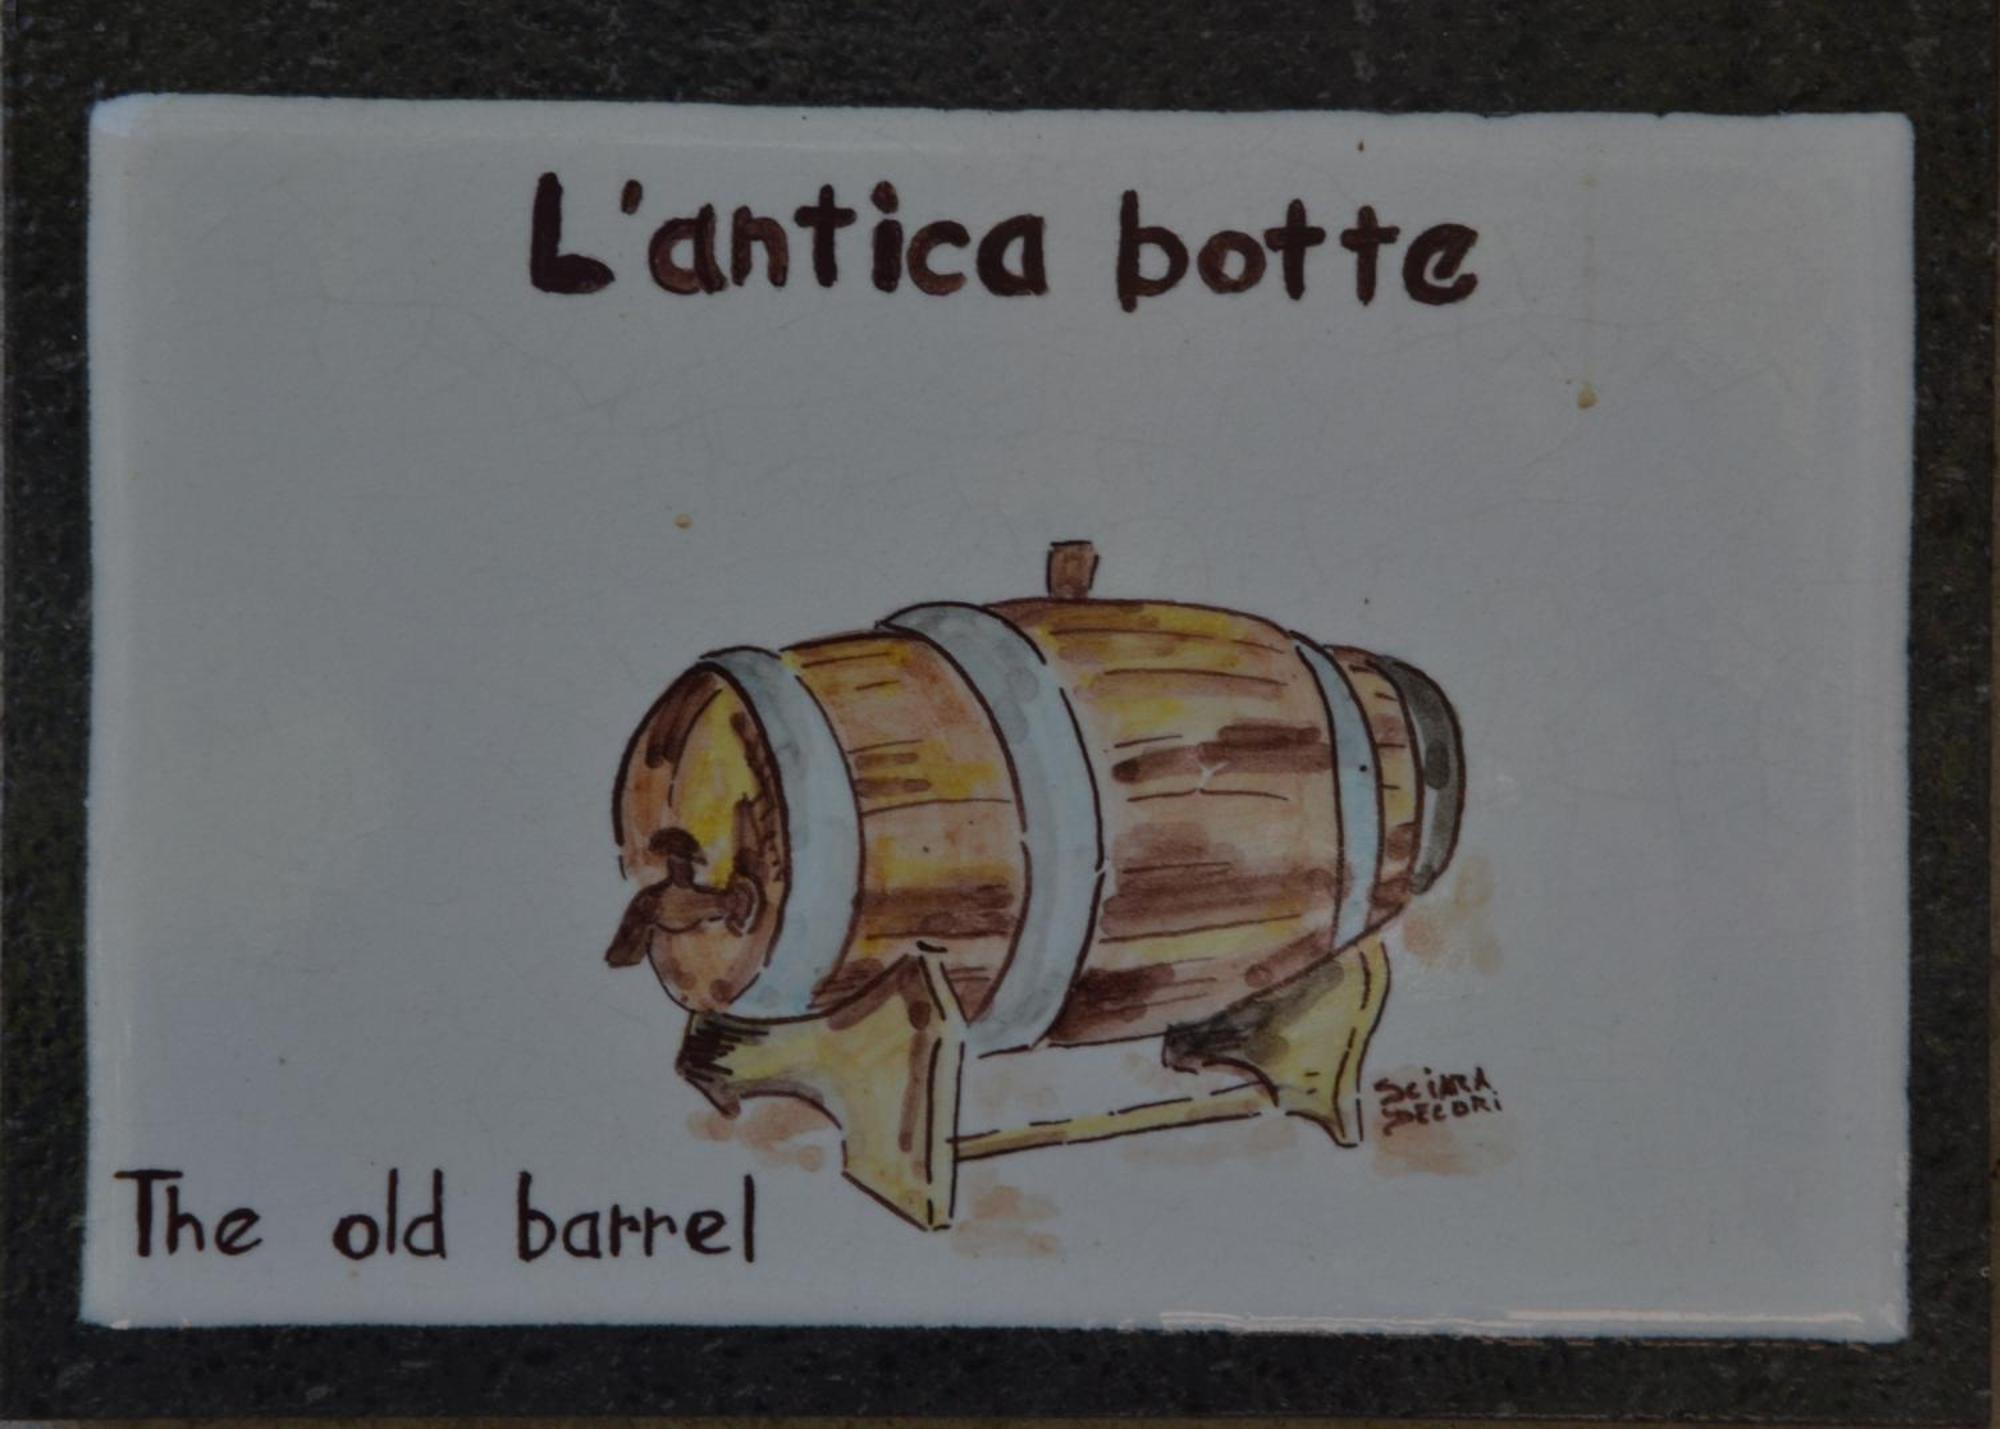 L'antica botte
SCIARA
DECORI
The old barrel